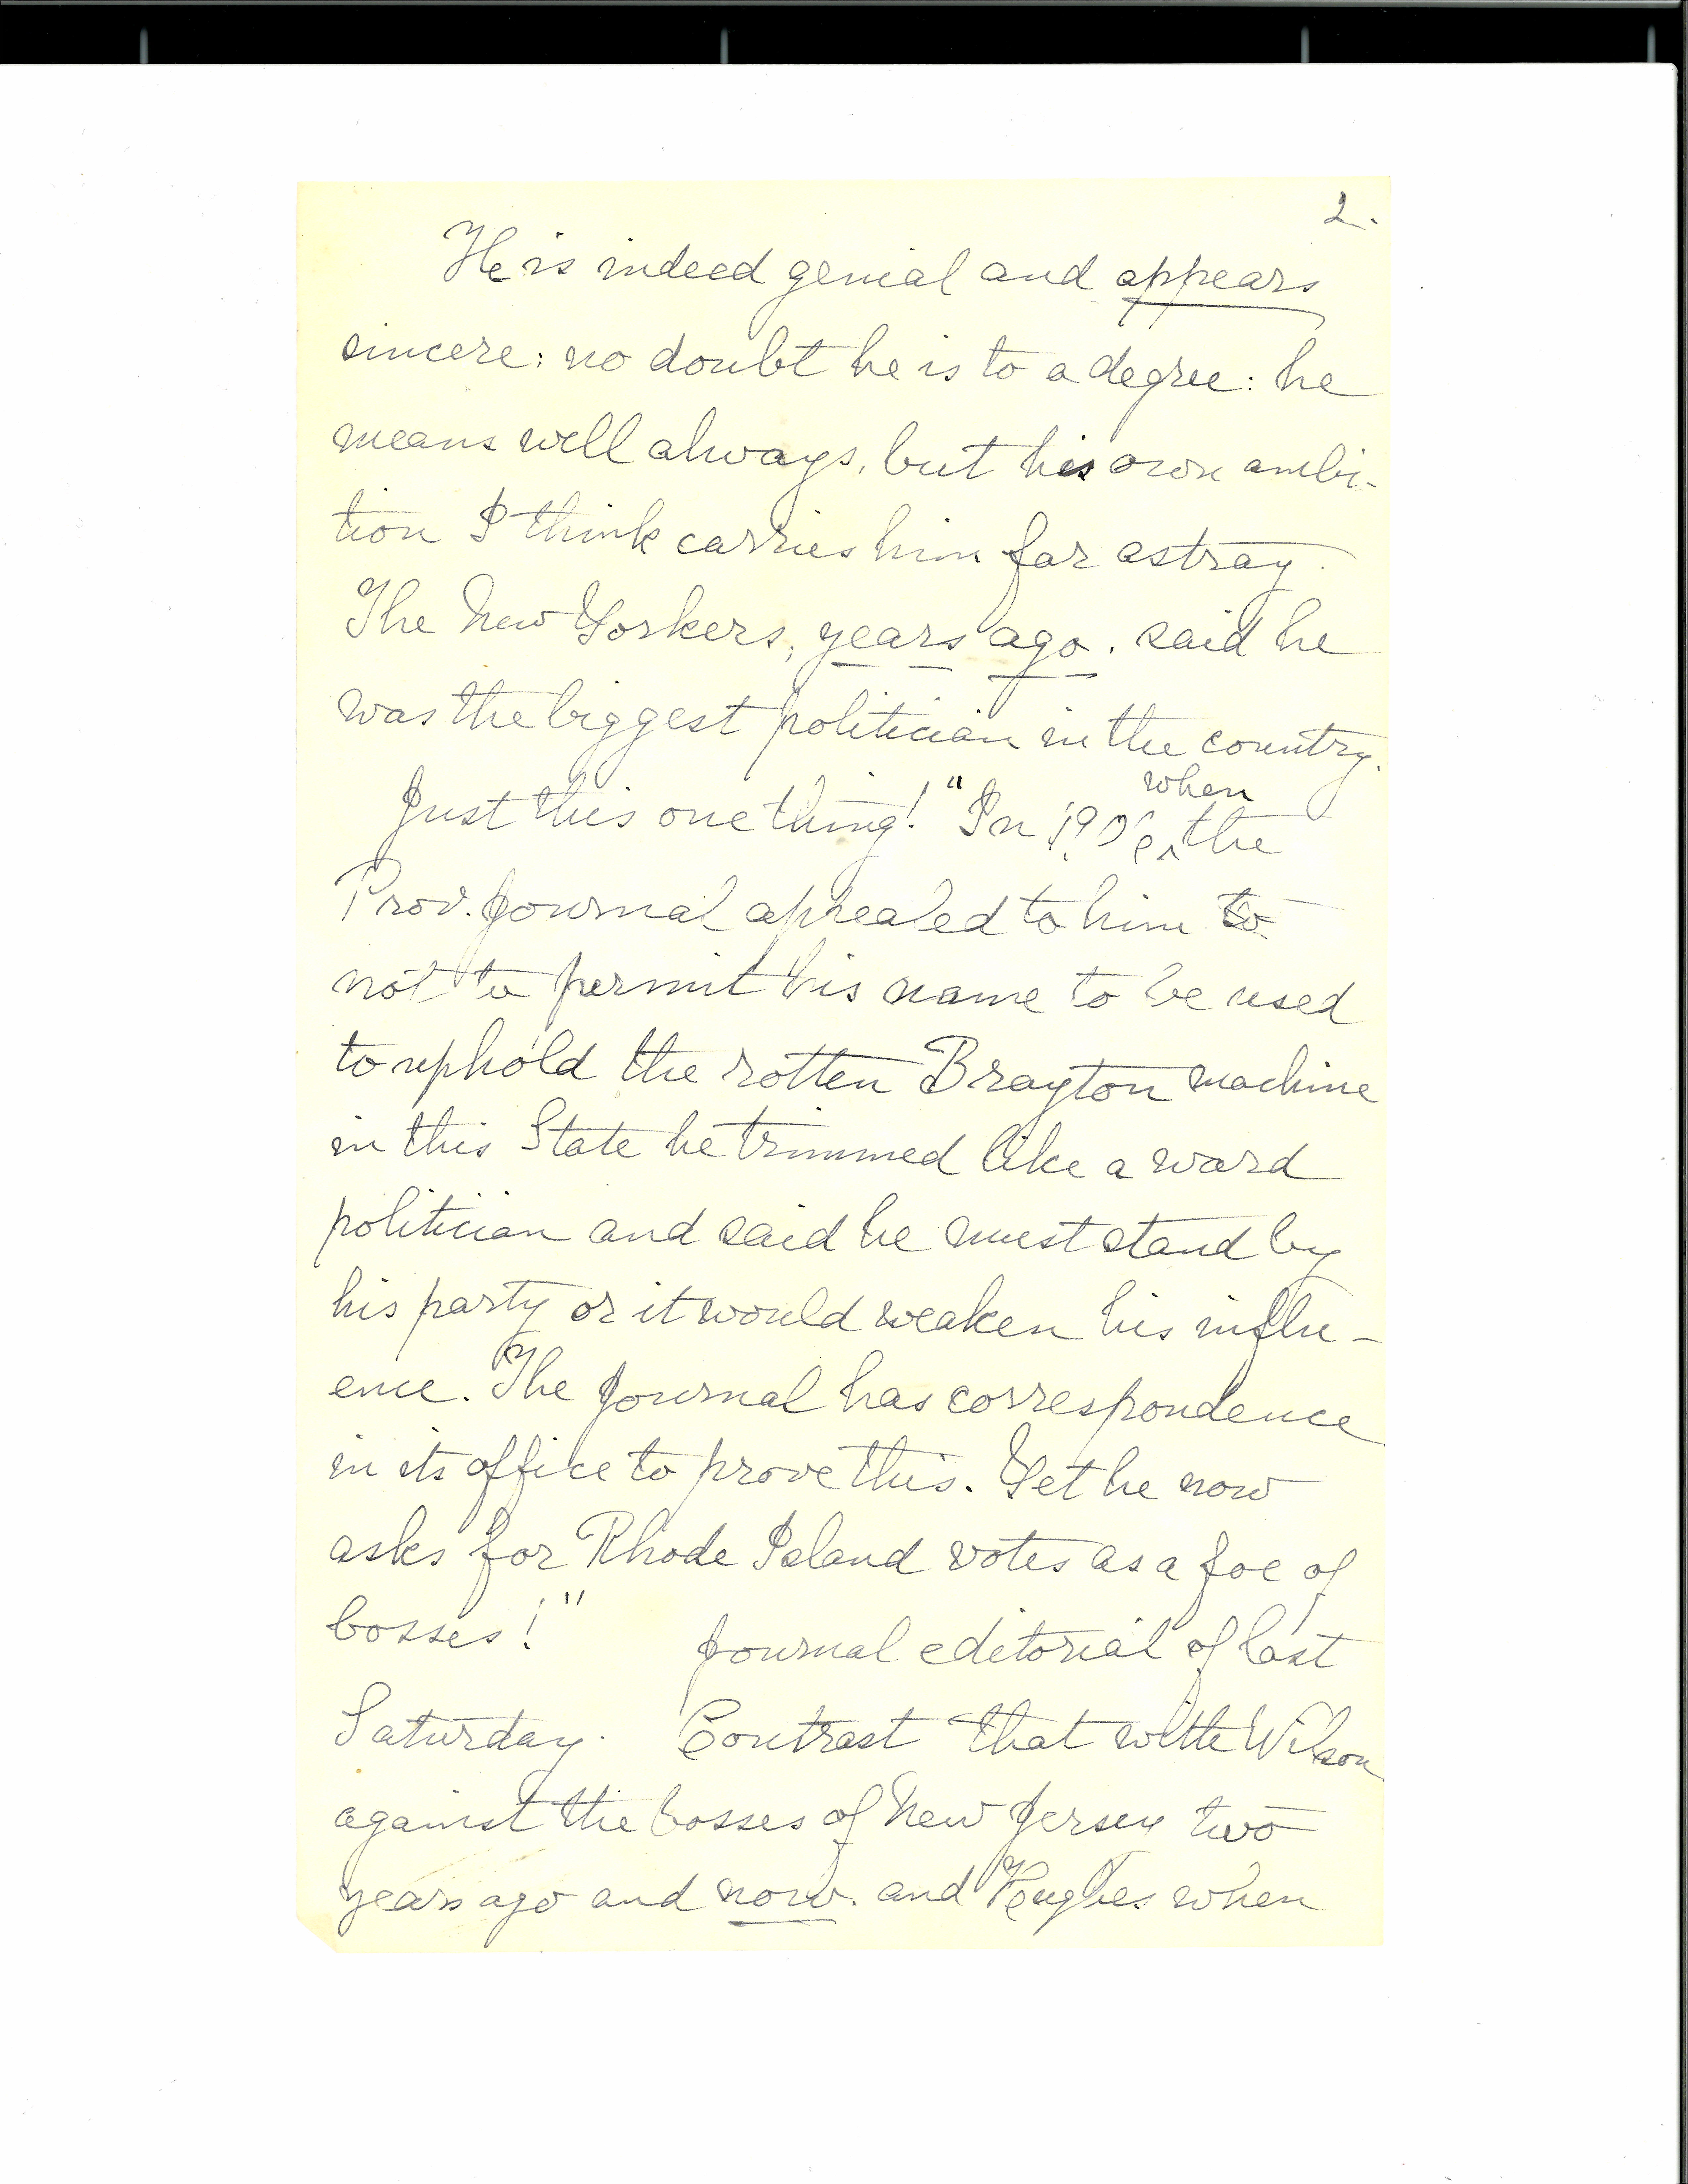 2.
He is indeed genial and appears
sincere: no doubt he is to a degree: he
means well always, but his own ambi-
tion I think carries him far astray.
The New Yorkers, years ago, said he
was the biggest politician in the country.
when
Just this one thing! "In the
Prov. Journal appealed to him to
not to permit his name to be used
to uphold the rotten Brayton machine
in this State he trimmed like a ward
politician and said he must stand by
his party or it would weaken his influ-
ence. The Journal has correspondence
in its office to prove this. Yet he now
asks for Rhode Island votes as a foe of
bosses!" Journal editorial of last
Saturday. Contrast that with Wilson
against the bosses of New Jersey two
years ago and now. and Hughes when